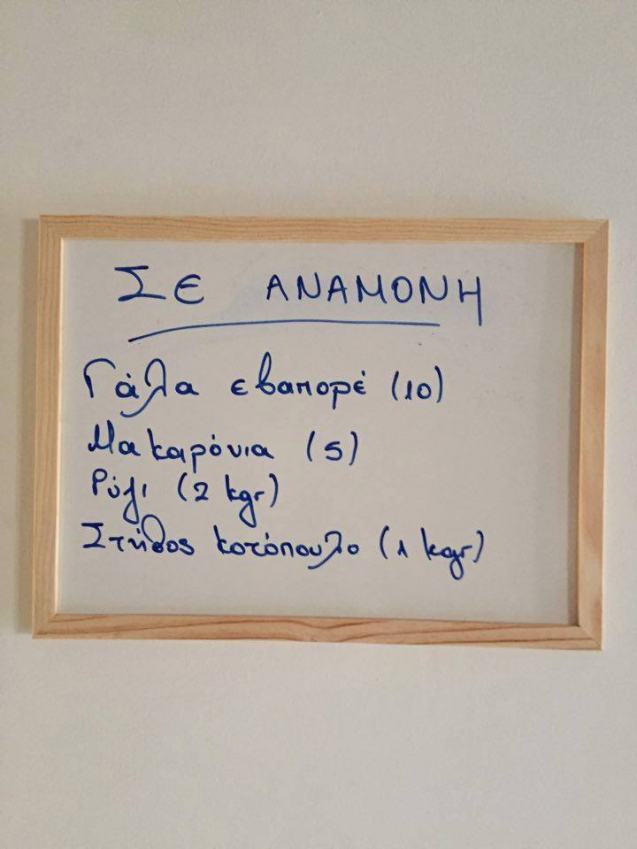 ΣΕ ΑΝΑΜΟΝΗ
Γάλα εβαπορέ (10)
Μακαρόνια (5)
Ρύζι (2 kgr)
Στήθος κοτόπουλο (1 kgr)